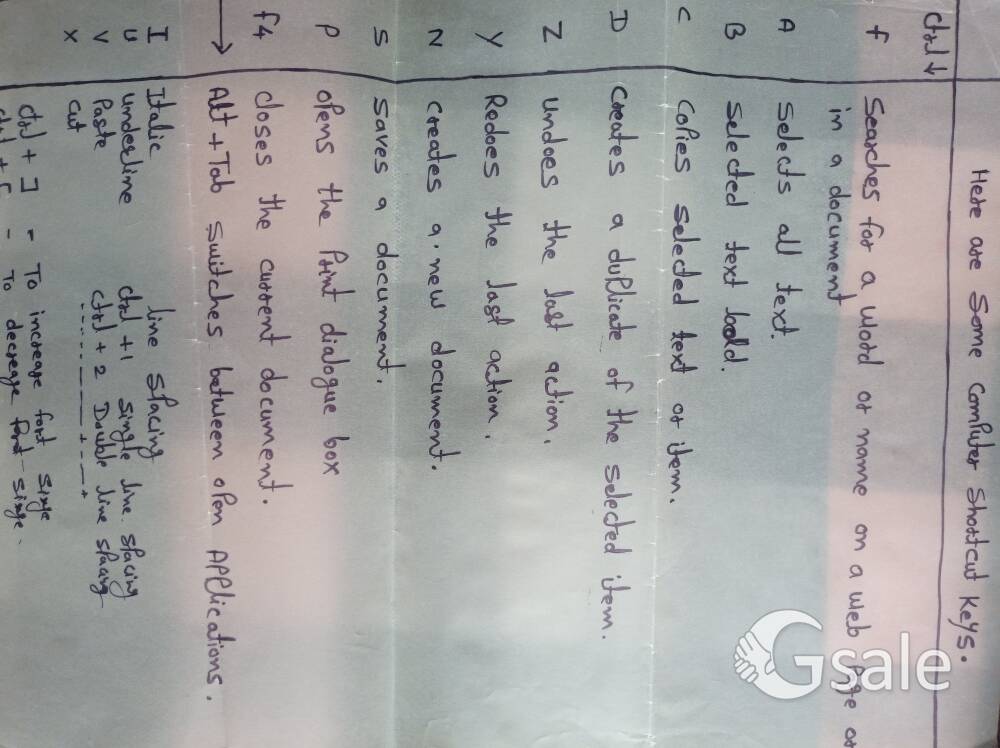 Here are Some Computer Shortcut Keys.
Ctrl ↓
f Searches for a word or name on a web Page or
in a document
A Selects all text.
B Selected text bold.
C Copies Selected text or item.
D Creates a duplicate of the selected item.
Z undoes the last action.
Y Redoes the last action.
N Creates a new document.
S Saves a document.
P opens the Print dialogue box
f4 closes the current document.
→ Alt + Tab switches between open Applications.
I Italic line spacing
U underline ctrl +1 single line spacing
V Paste ctrl + 2 Double line spacing
X cut
ctrl + ] - To increase font singe
ctrl + [ - To decrease font singe.
Gsale